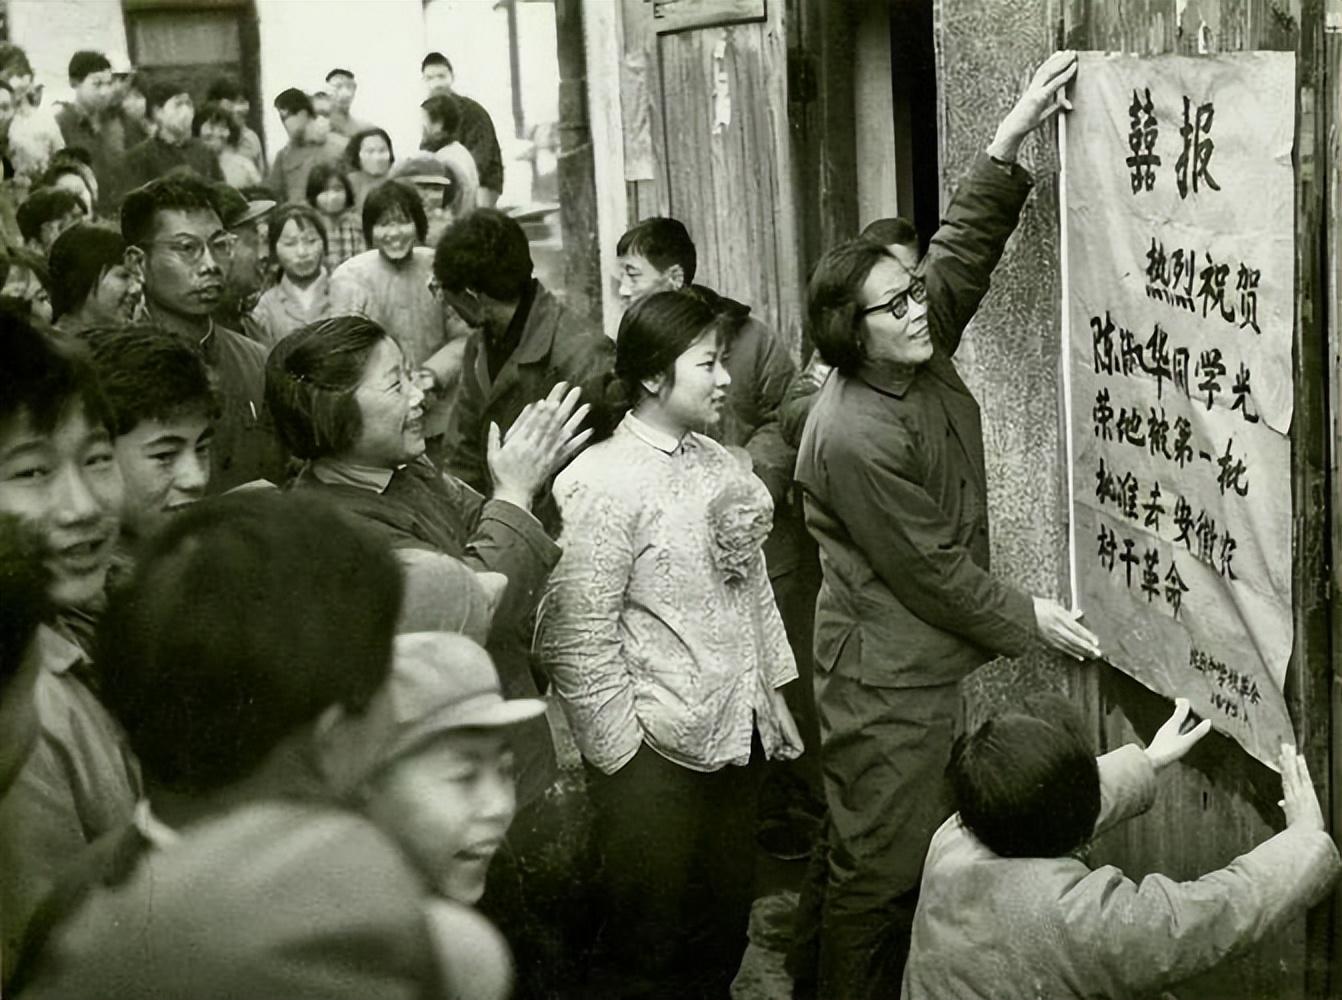 囍报
热烈祝贺
陈淑华同学光
荣地被第一批
批准去安徽农
村干革命